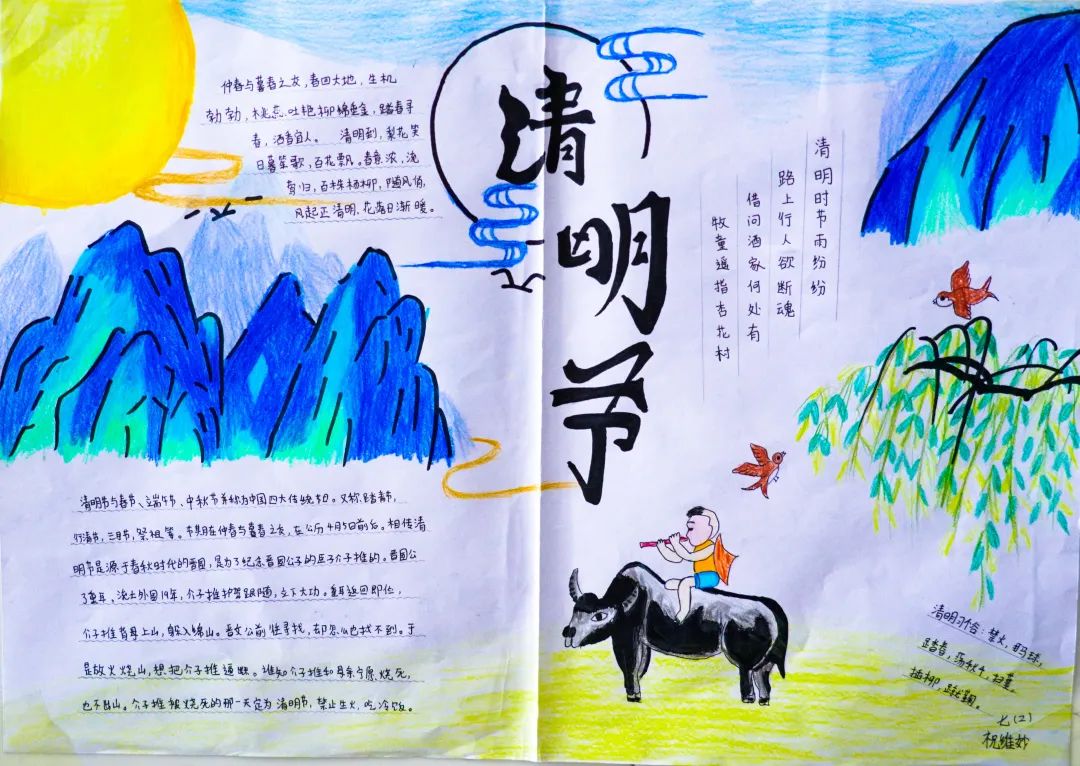 仲春与暮春之交，春回大地，生机
勃勃，桃蕊吐艳柳绵金，踏春寻
春，酒香宜人。清明到，梨花笑
日暮笙歌，百花飘。春意浓，浣
归，百株杨柳，随风俏，
风起正清明，花落日渐暖。
清明节
清明时节雨纷纷
路上行人欲断魂
借问酒家何处有
牧童遥指杏花村
清明节与春节、端午节、中秋节并称为中国四大传统节日。又称踏青节，
行清节，三月节，祭祖节等。节期在仲春与暮春之交，在公历4月5日前后。相传清
明节是源于春秋时代的晋国，是为了纪念晋国公子的臣子介子推的。晋国公
子重耳，流亡外国19年，介子推护驾跟随，立下大功。重耳返回即位，
介子推背母上山，躲入绵山。晋文公前往寻找，却怎么也找不到。于
是放火烧山，想把介子推逼出。谁知介子推和母亲宁愿烧死，
也不出山。介子推被烧死的那一天定为清明节，禁止生火，吃冷饭。
清明习俗：禁火，马球，
踏春，荡秋千，扫墓，
插柳，蹴鞠。
七（2）
祝维妙